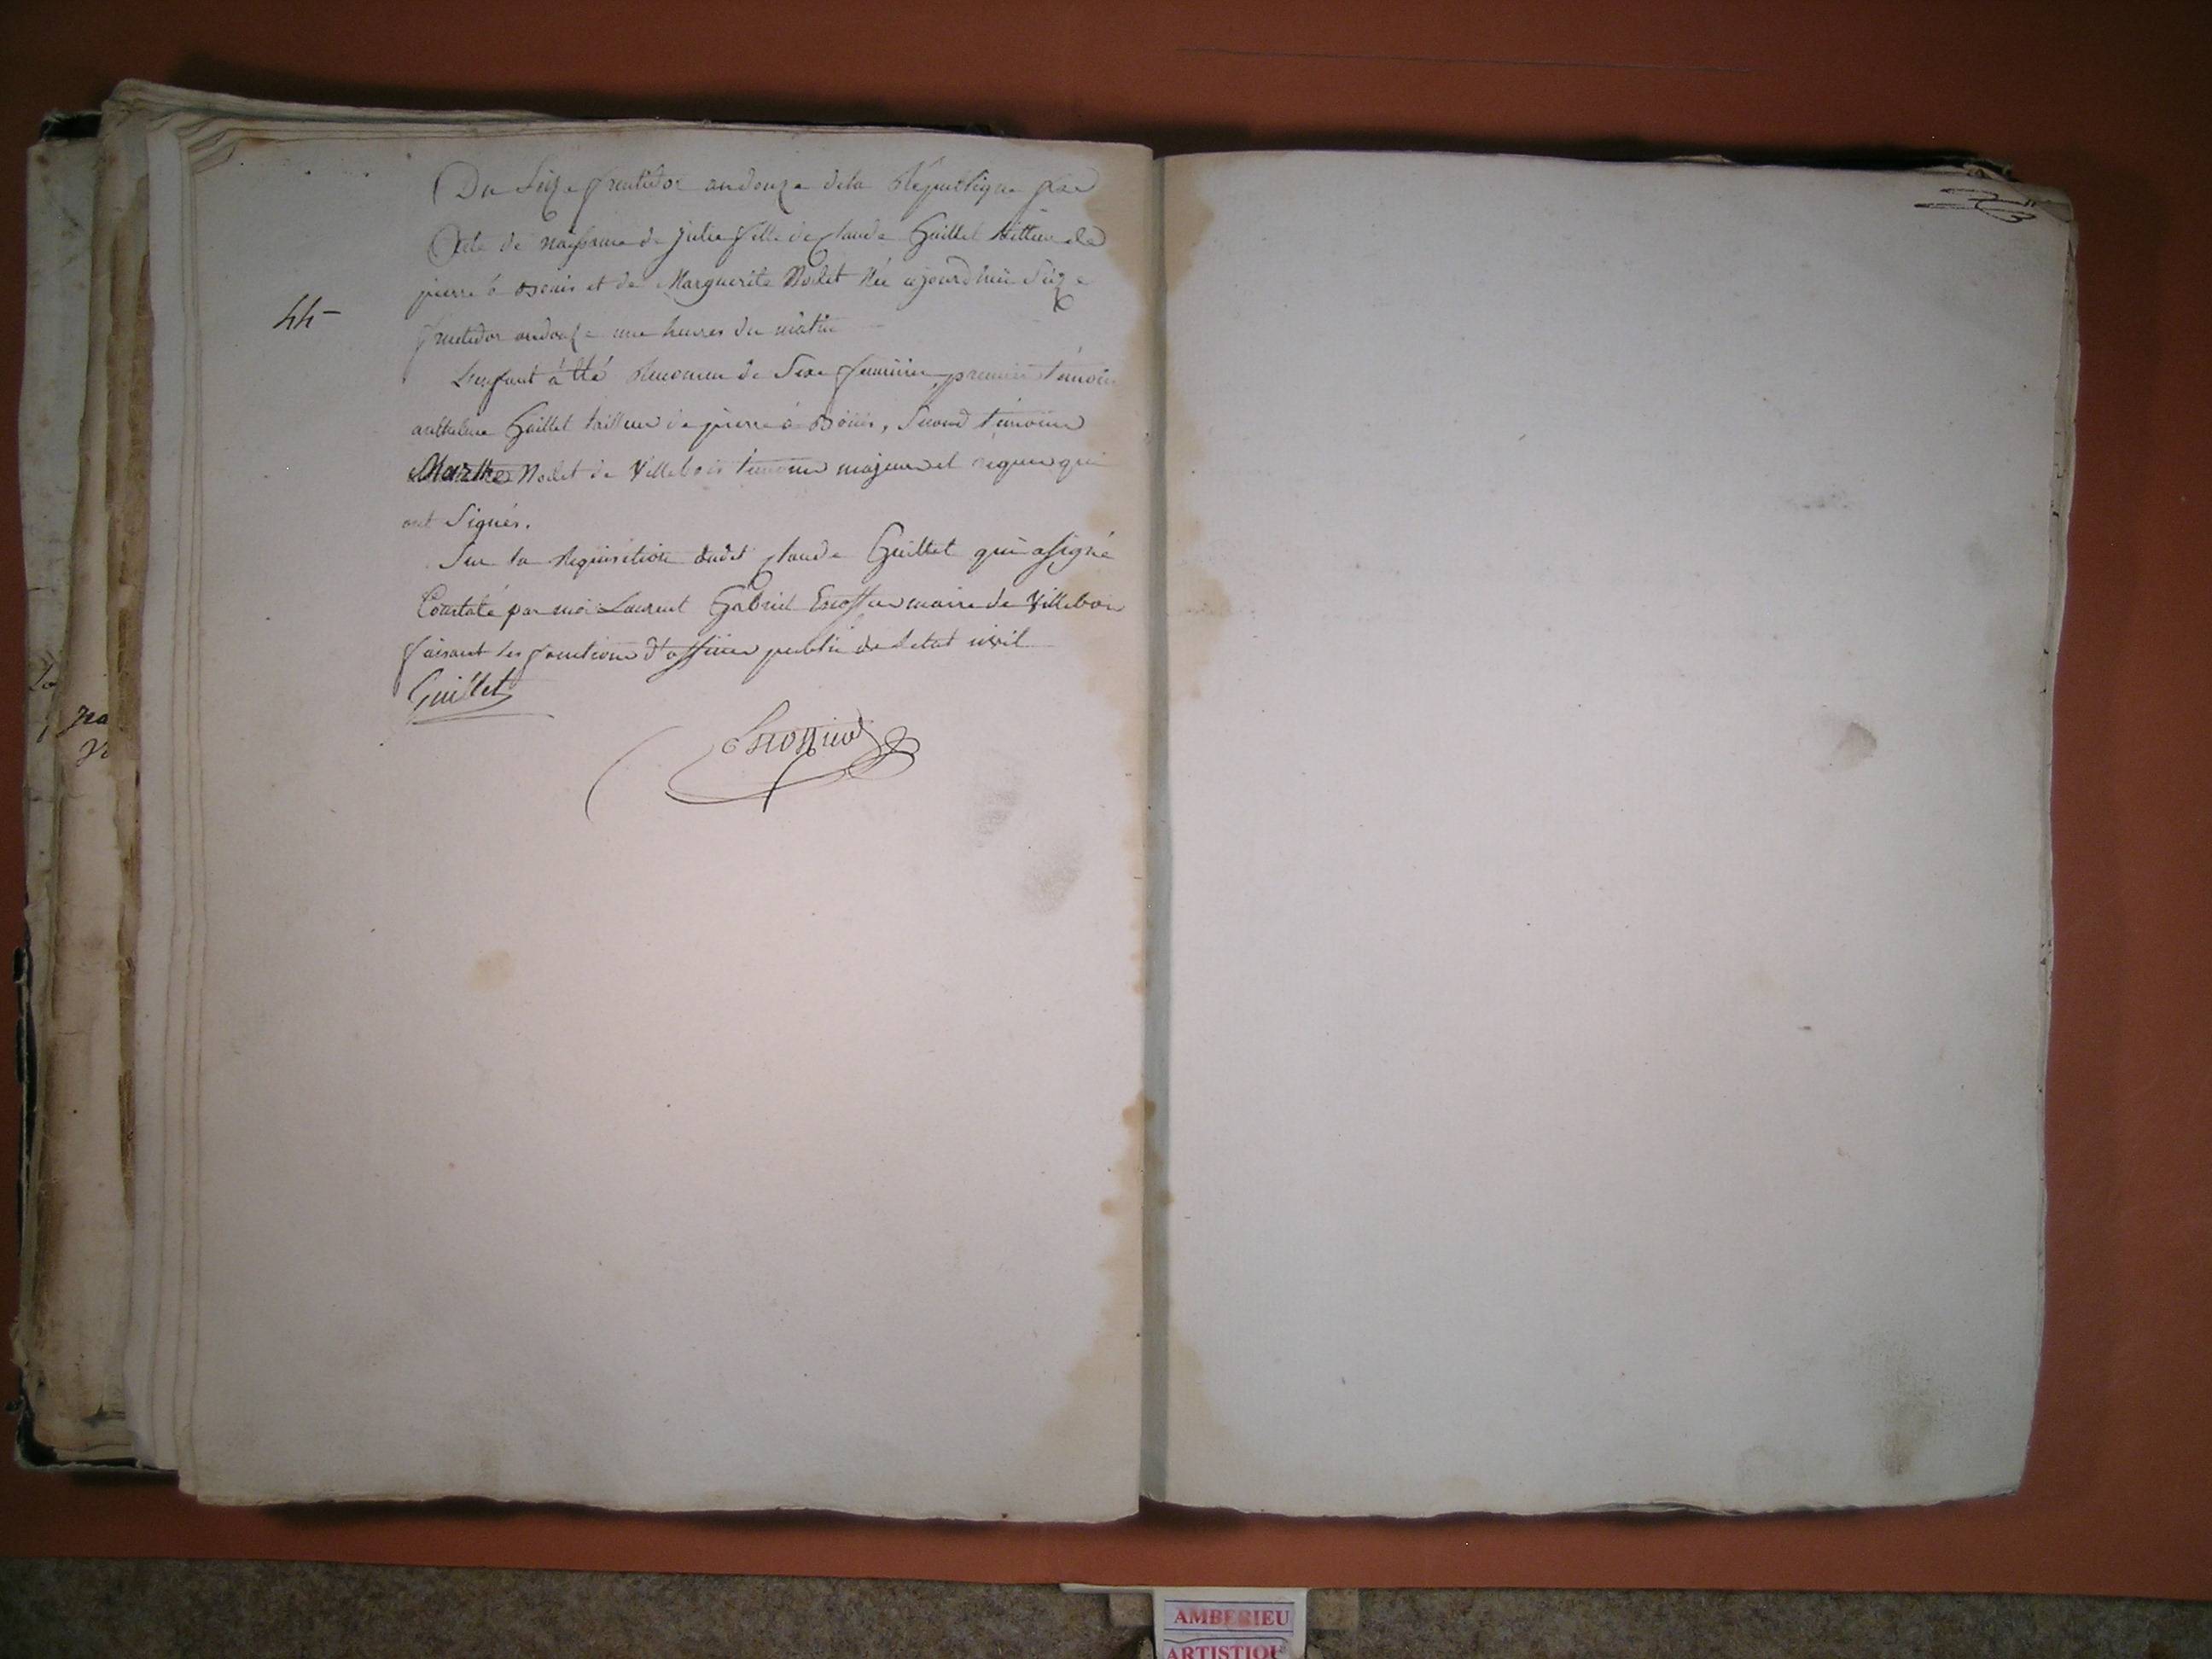 Du Seize fructidor an douze de la Republique
Acte de naissance de Julie fille de Claude Guillet
pierre à Bouis et de Marguerite Nodet Née ajourdhui Seize
44
fructidor an douze une heures du matin
L'enfant à été Reconnu de Sexe feminin, premier témoin
anthelme Guillet tailleur de pierre à Bouis, Second témoin
Marthe Nodet de Villebois témoins majeur et requis qui
ont Signés.
Sur la Requisition dudit Claude Guillet qui a signé
Constaté par moi Laurent Gabriel Escoffier maire de Villebois
faisant les fonctions d'officier public de l'etat civil
Guillet
Escoffier
AMBERIEU
ARTISTIQUE